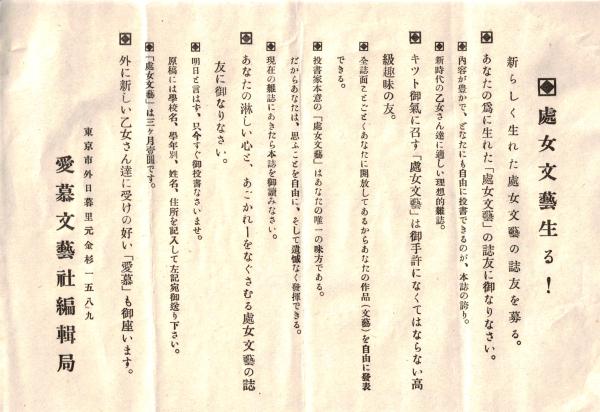 處女文藝生る！
新らしく生れた處女文藝の誌友を募る。
あなたの爲に生れた「處女文藝」の誌友に御なりなさい。
内容が豊かで、どなたにも自由に投書できるのが、本誌の誇り。
新時代の乙女さん達に適しい理想的雜誌。
キツト御氣に召す「處女文藝」は御手許になくてはならない高
級趣味の友。
全誌面ことごとくあなたに開放してあるからあなたの作品（文藝）を自由に發表
できる。
投書家本意の「處女文藝」はあなたの唯一の味方である。
だからあなたは、思ふことを自由に、そして遺憾なく發揮できる。
現在の雜誌にあきたら本誌を御讀みなさい。
あなたの淋しい心と、あこがれーをなぐさむる處女文藝の誌
友に御なりなさい。
明日と言はず、只今すぐ御投書なさいませ。
原稿には學校名、學年別、姓名、住所を記入して左記宛御送り下さい。
「處女文藝」は三ヶ月壹圓です。
外に新しい乙女さん達に受けの好い「愛慕」も御座います。
東京市外日暮里元金杉一五八九
愛慕文藝社編輯局